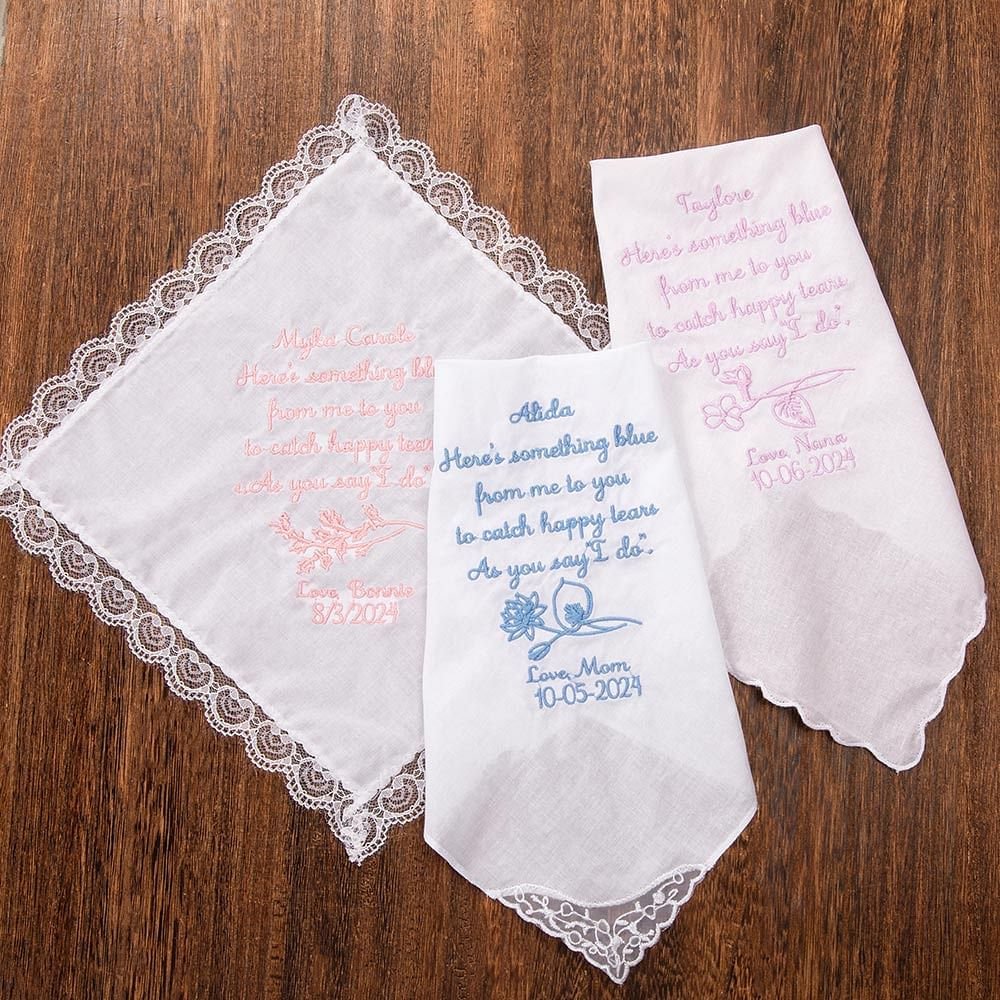 Myka Carole
Here's something bl
from me to you
to catch happy tears
As you say "I do"
Love, Bonnie
8/3/2024
Alida
Here's something blue
from me to you
to catch happy tears
As you say "I do".
Love, Mom
10-05-2024
Taylore
Here's something blue
from me to you
to catch happy tears
As you say "I do".
Love, Nana
10-06-2024